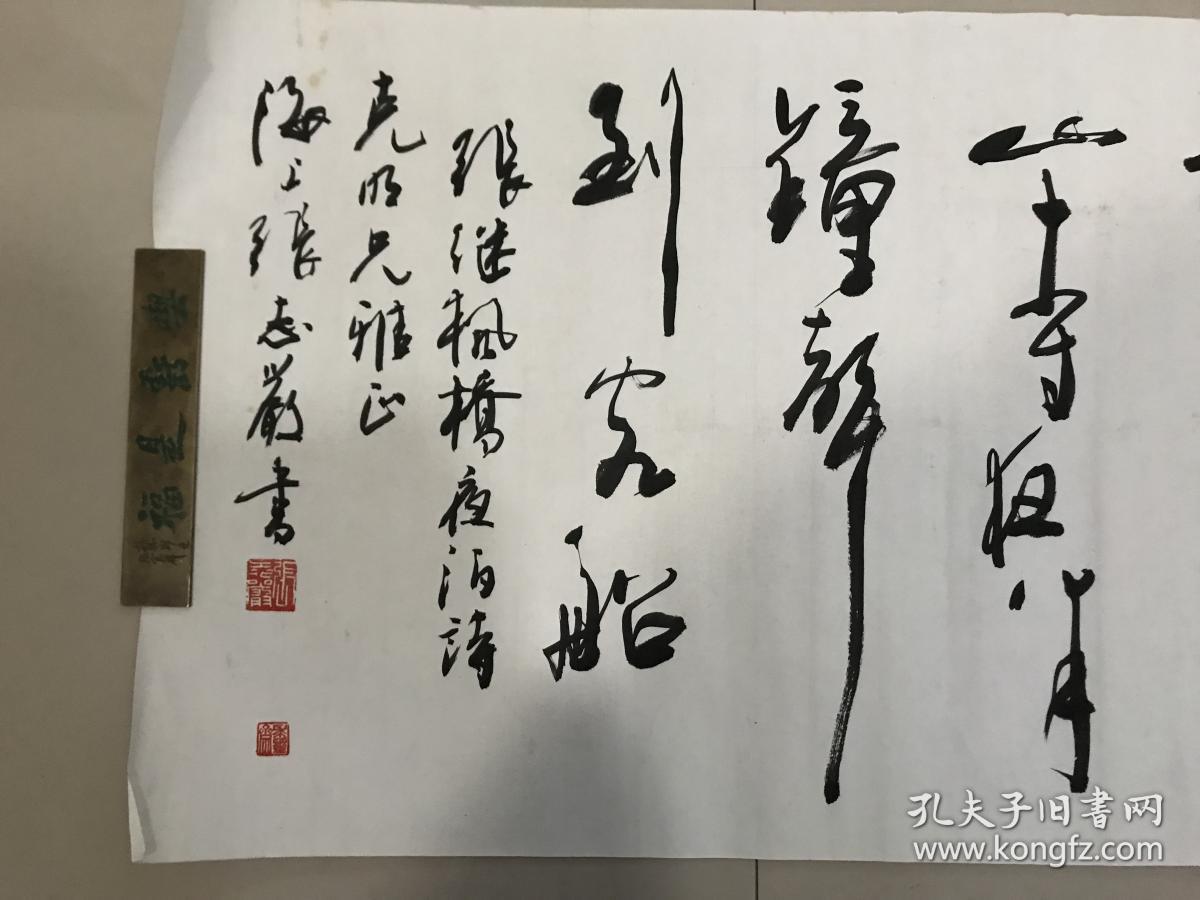 山寺夜半
鐘聲
到客船
張继楓橋夜泊詩
克明兄雅正
海上張志嚴書
孔夫子旧書网
www.kongfz.com